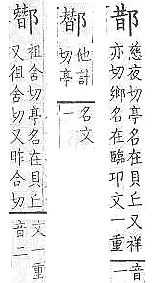 慈夜切亭名在貝丘又祥
亦切鄉名在臨邛文一重
音
一
他計
切亭
名文
一
祖舍切亭名在貝丘
又徂舍切又昨合切
文一重
音二